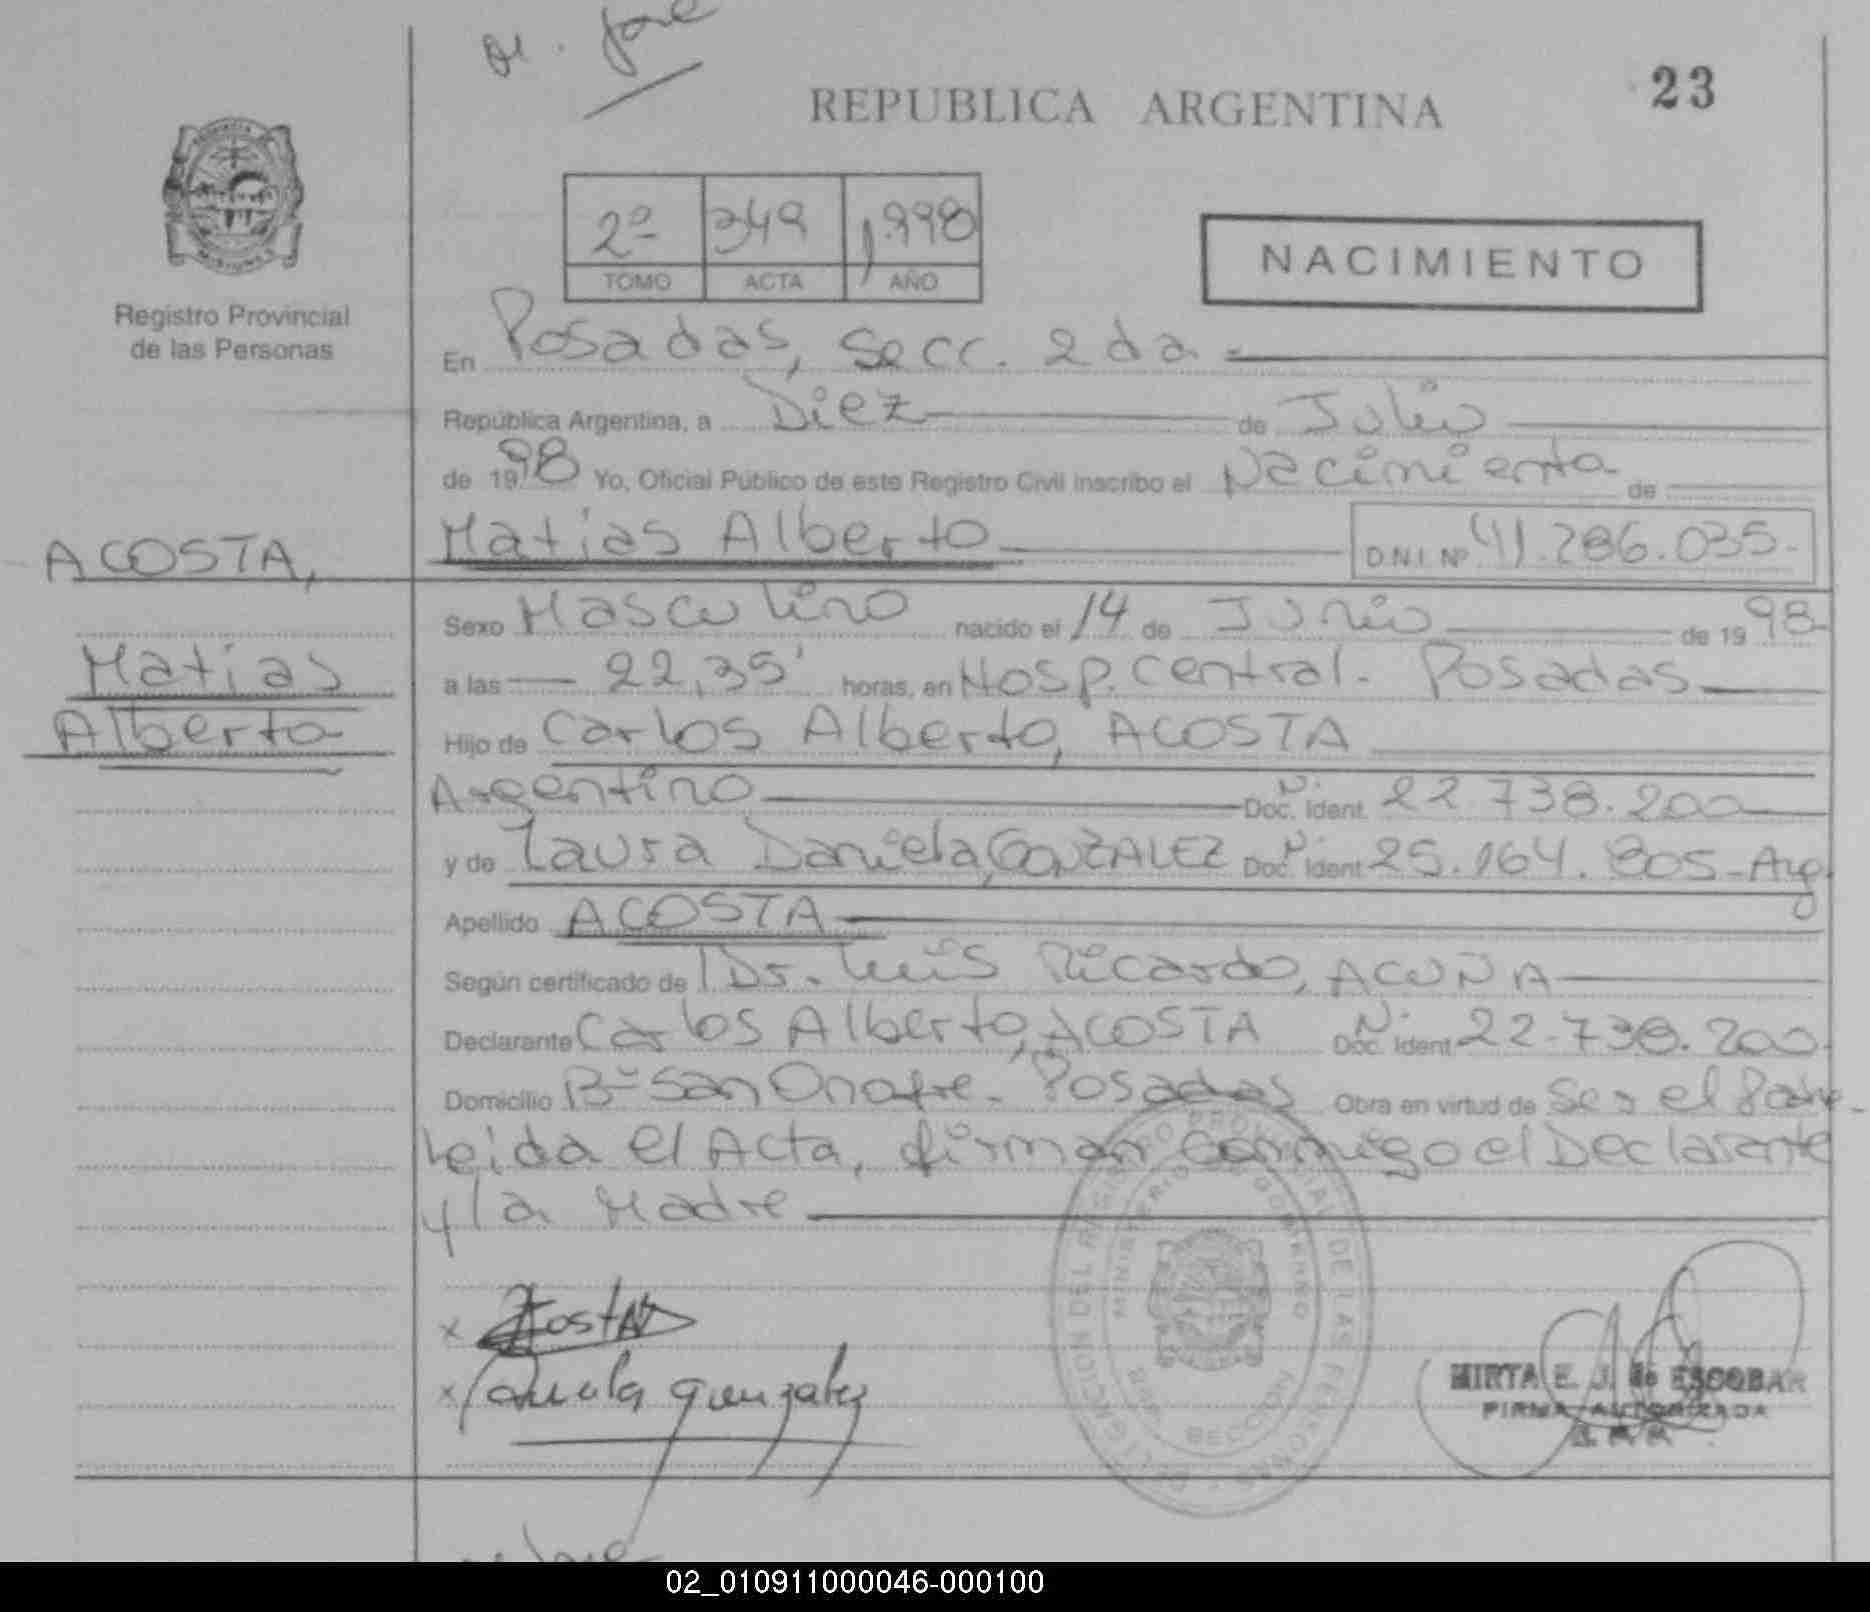 REPUBLICA ARGENTINA
23
2º 349 1.998
TOMO ACTA AÑO
NACIMIENTO
Registro Provincial
de las Personas
En Posadas, Secc. 2da.
República Argentina, a Diez de Julio
de 1998 Yo, Oficial Público de este Registro Civil inscribo el Nacimiento de
ACOSTA,
Matias
Alberto
Matias Alberto D.N.I. Nº 41.286.035.
Sexo Masculino nacido el 14 de Junio de 1998
a las 22,35' horas, en Hosp. Central. Posadas
Hijo de Carlos Alberto, ACOSTA
Argentino Doc. Ident. 22.738.200
y de Laura Daniela, GONZALEZ Doc. Ident. 25.164.805-Arg
Apellido ACOSTA
Según certificado de Dr. Luis Ricardo, ACUÑA
Declarante Carlos Alberto, ACOSTA Doc. Ident. 22.738.200
Domicilio Bº San Onofre. Posadas Obra en virtud de Ser el Padre.
Leida el Acta, firman conmigo el Declarante
y la Madre
x Acosta
x Daniela gonzalez
MIRTA E. J. de ESCOBAR
FIRMA AUTORIZADA
02_010911000046-000100